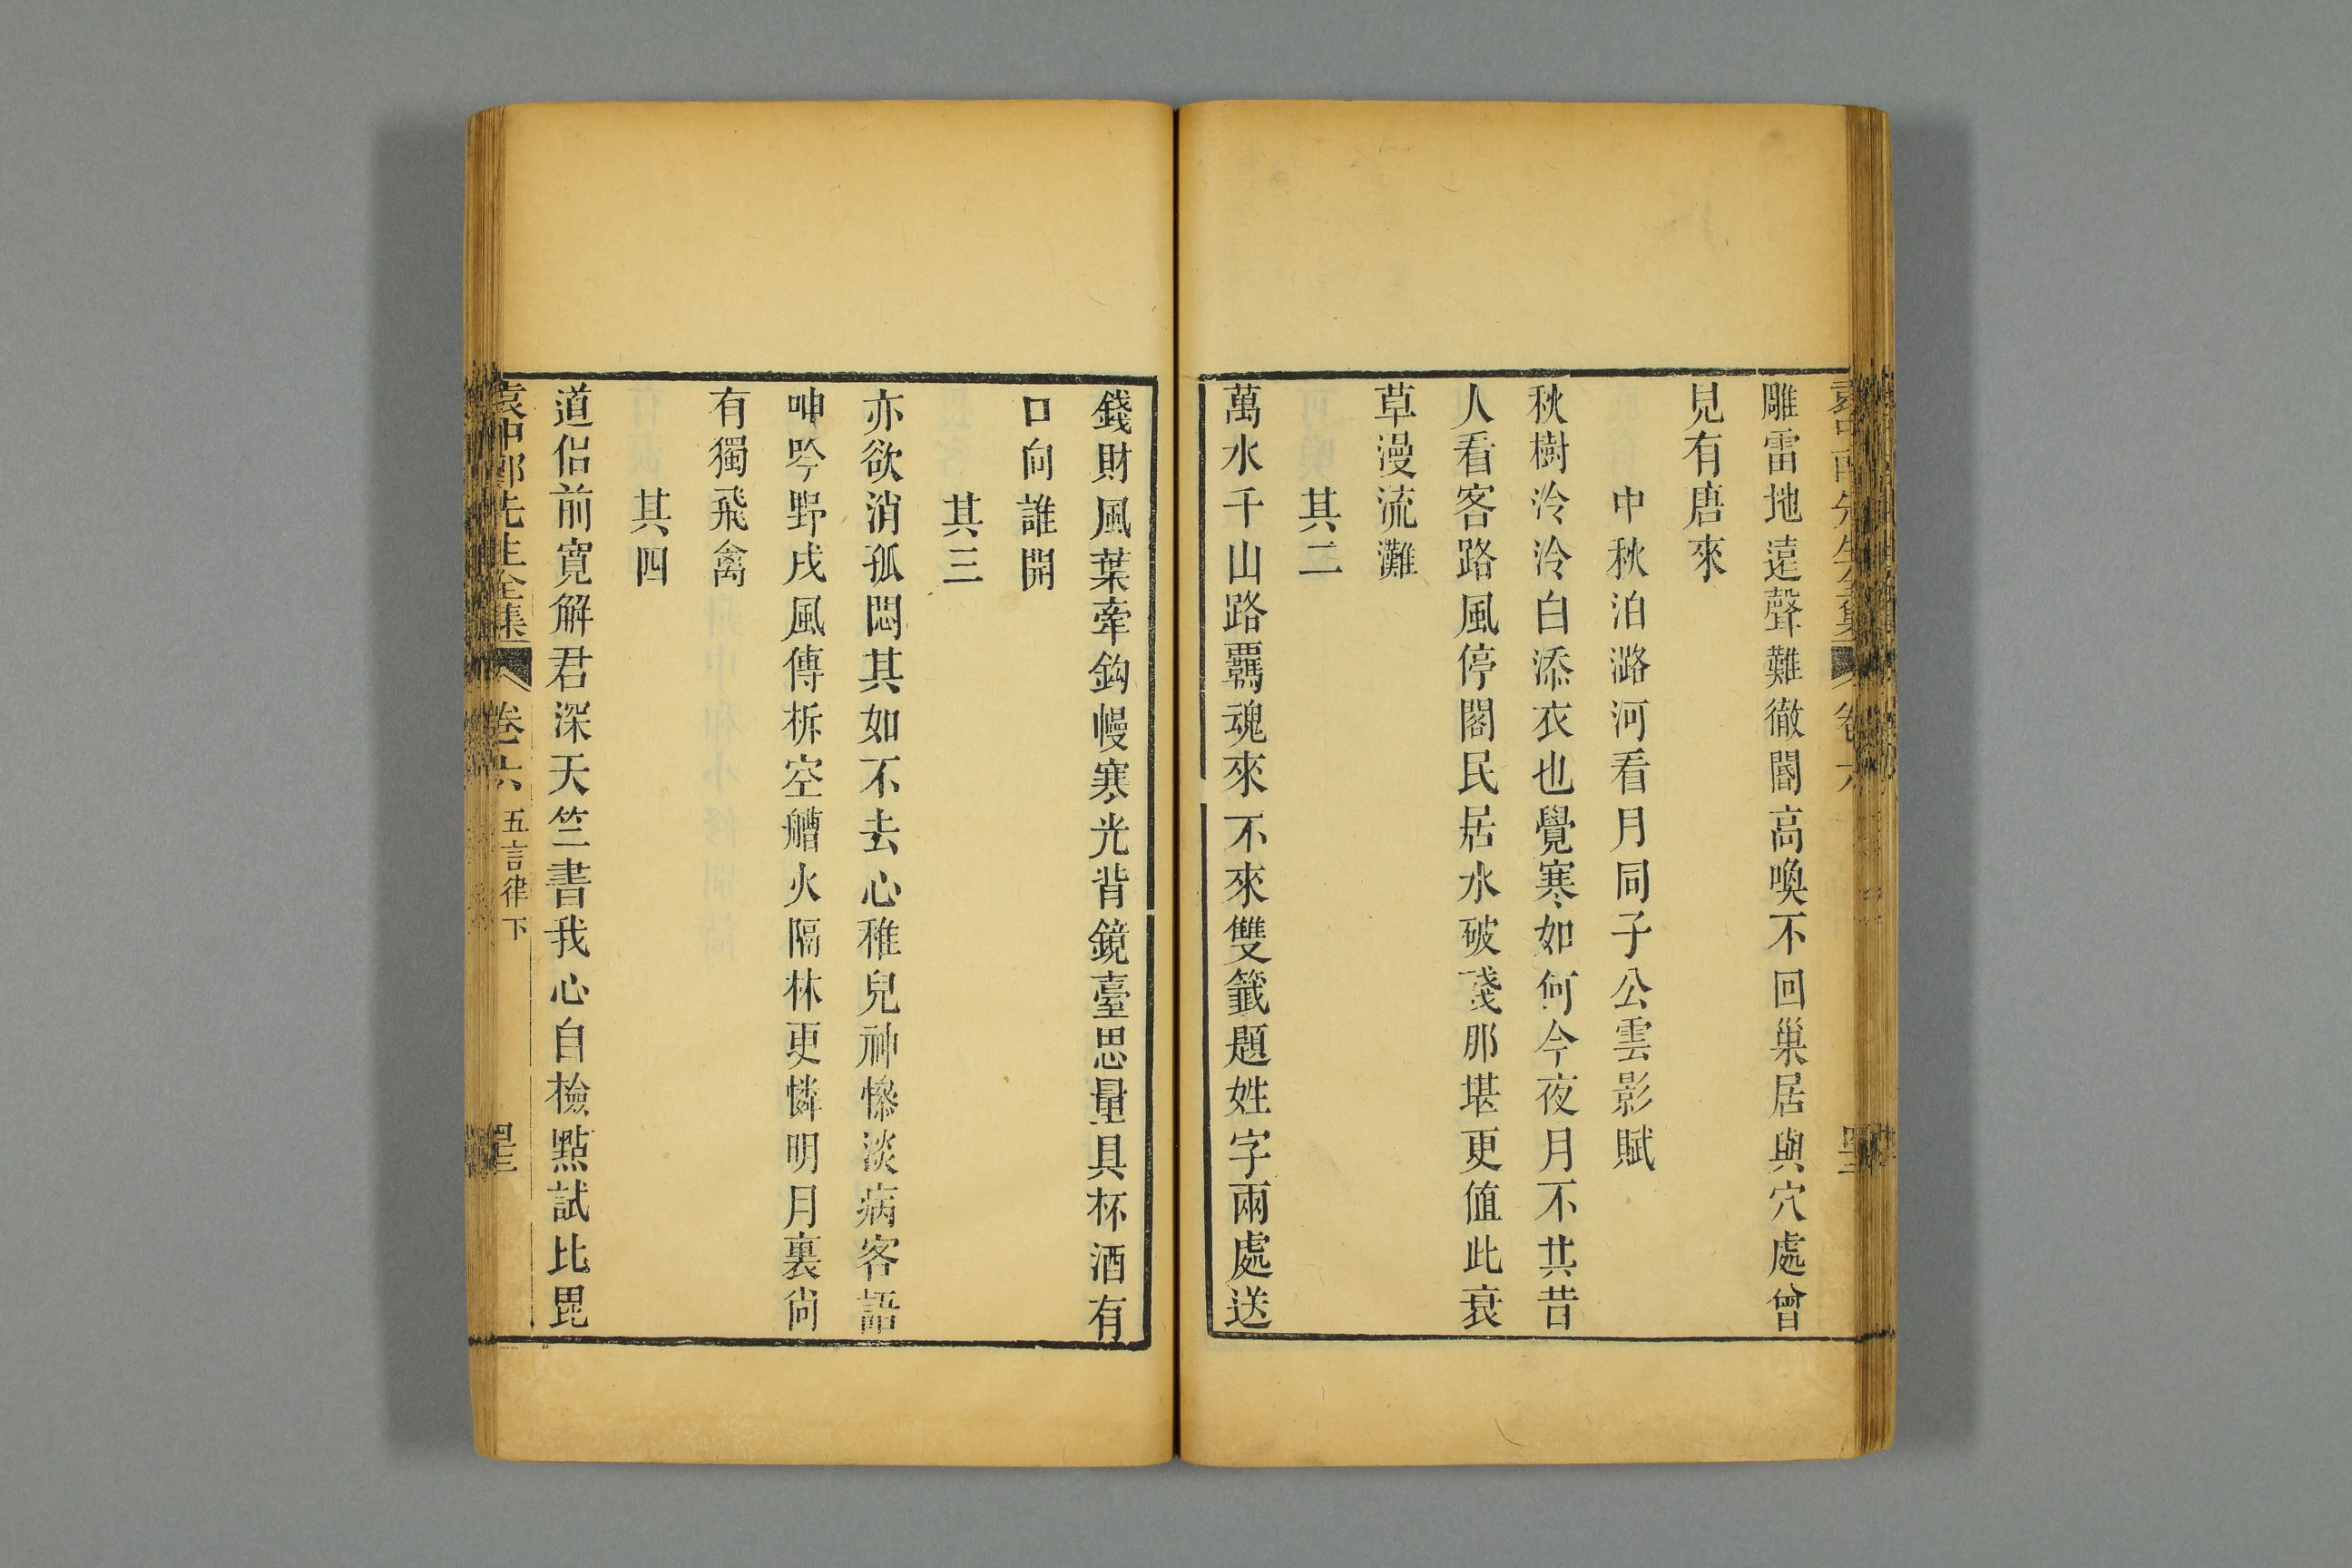 雕雷地遠聲難徹閽高喚不回巢居與穴處曾
見有唐來
中秋泊潞河看月同子公雲影賦
秋樹泠泠白添衣也覺寒如何今夜月不共昔
人看客路風停閣民居水破殘那堪更值此衰
草漫流灘
其二
萬水千山路羈魂來不來雙籤題姓字兩處送
錢財風葉牽鈎幔寒光背鏡臺思量具杯酒有
口向誰開
其三
亦欲消孤悶其如不去心稚兒神慘淡病客語
呻吟野戍風傳柝空艚火隔林更憐明月裏尙
有獨飛禽
其四
道侶前寬解君深天竺書我心自檢點試比毘
袁中郎先生全集 卷六 五言律下